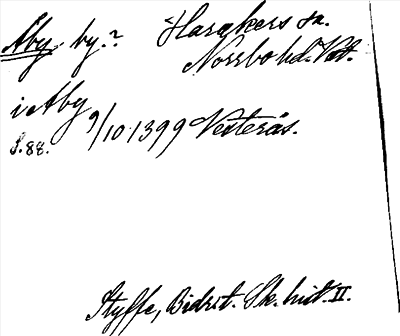 Åby, by.? Harakers sn.
Norrbo hd. Vstm.
i Aby 9/10 1399 Västerås.
S. 88.
Styffe, Bidr. t. Sk. hist. II.